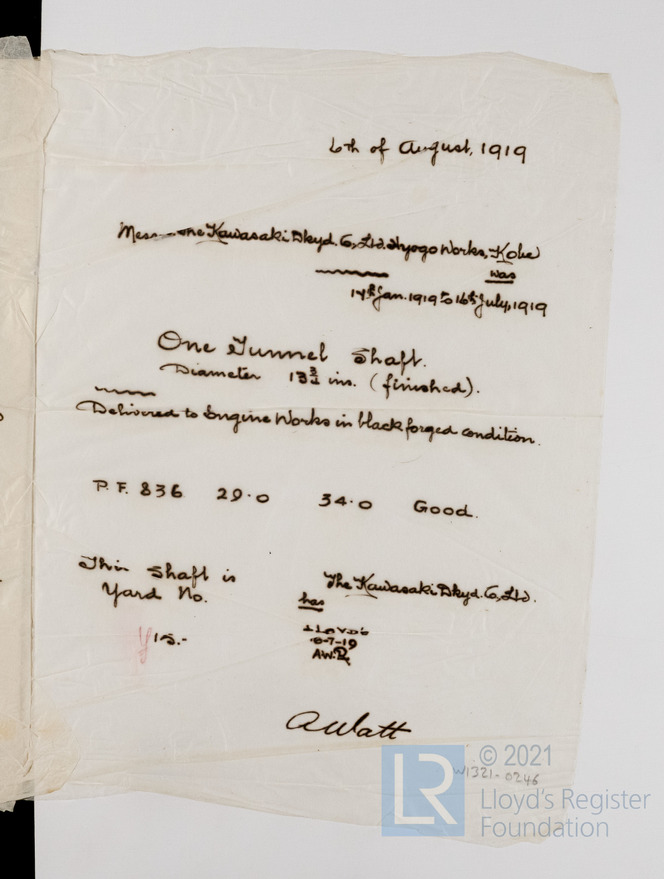 6th of August, 1919
Mess the Kawasaki Dkyd. Co, Ltd. Hyogo Works, Kobe
was
14th Jan. 1919 to 16th July, 1919
One Tunnel Shaft.
Diameter 13¾ ins. (finished).
Delivered to Engine Works in black forged condition.
P.F. 836 29.0 34.0 Good.
This Shaft is
Yard No.
The Kawasaki Dkyd. Co, Ltd.
has
LLOYD'S
-7-19
A.W.
15.-
A Watt
W1321-0246
LR
© 2021
Lloyd's Register
Foundation